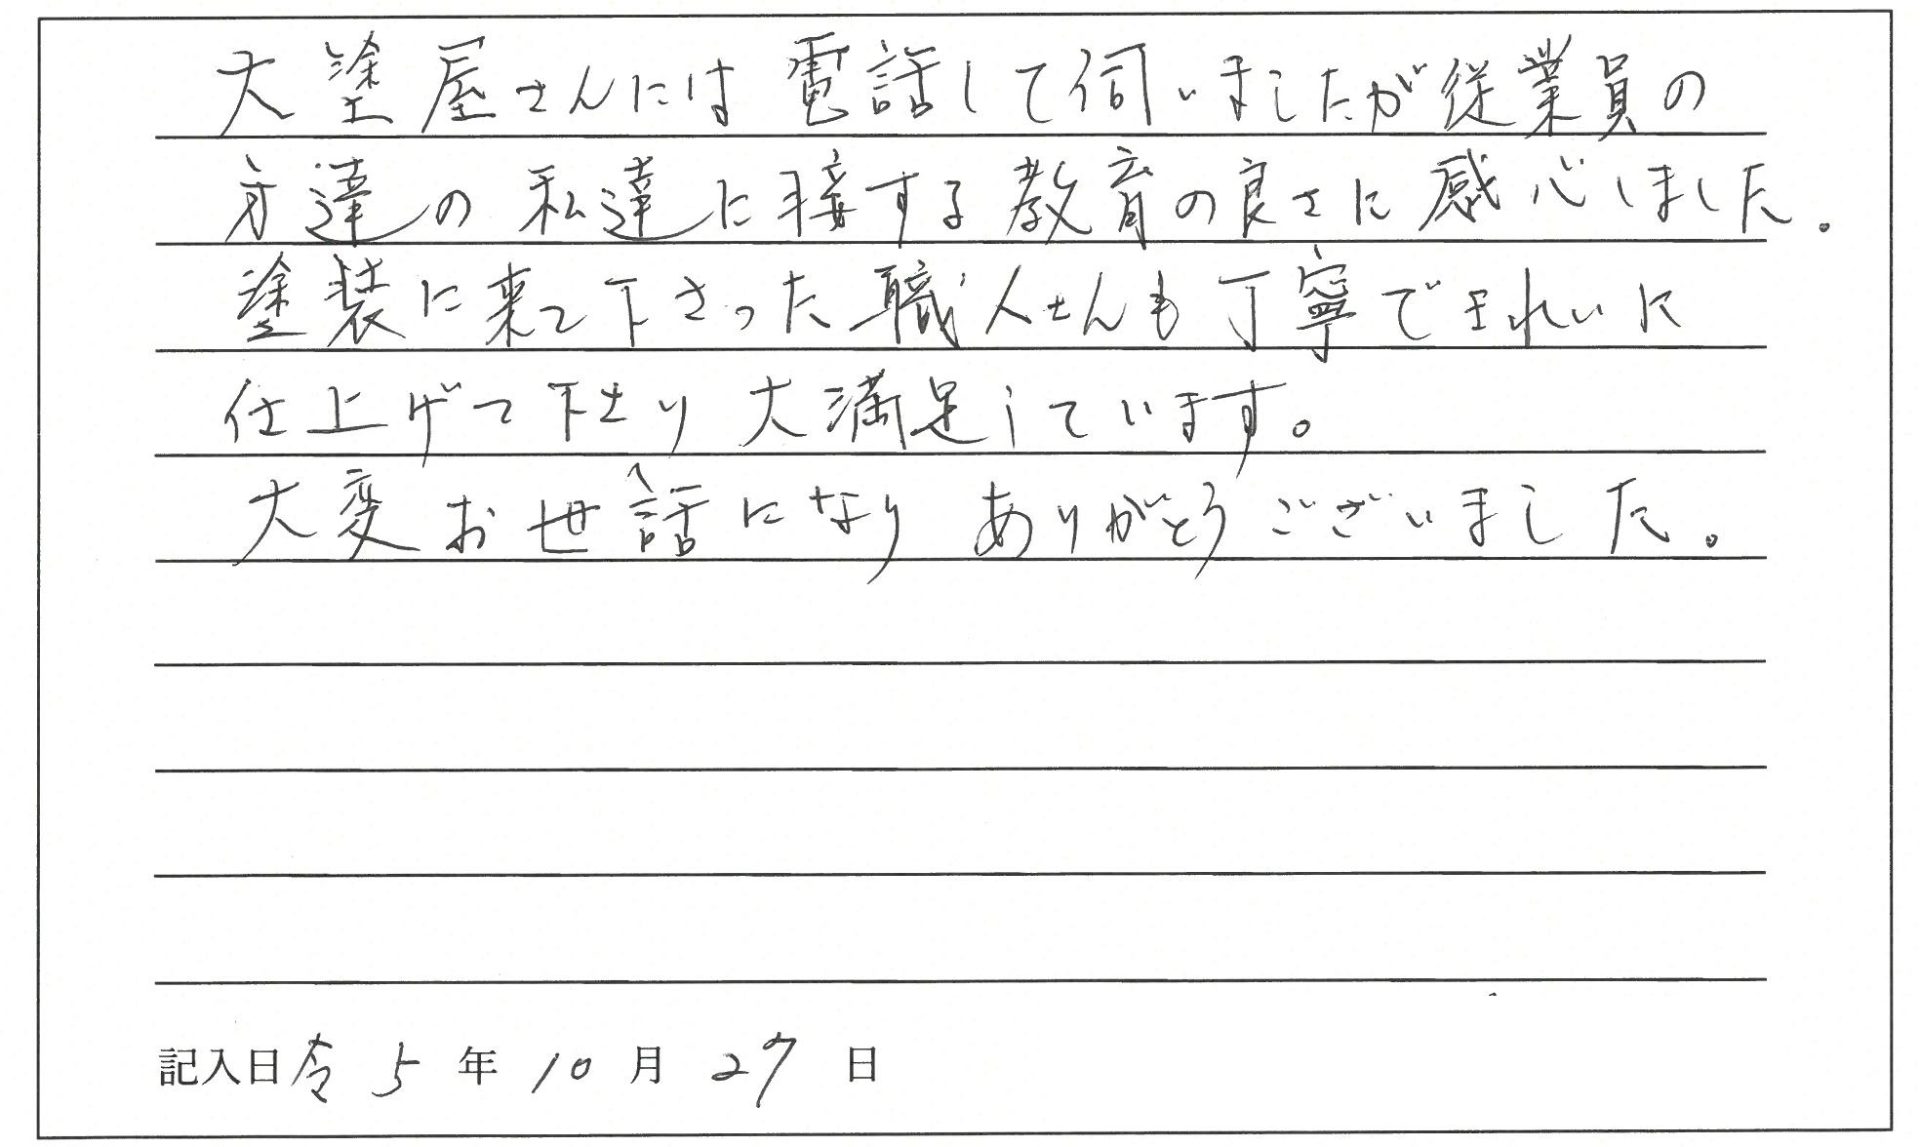 大塗屋さんには電話して伺いましたが従業員の
方達の私達に接する教育の良さに感心しました。
塗装に来て下さった職人さんも丁寧できれいに
仕上げて下さり大満足しています。
大変お世話になりありがとうございました。
記入日 令5年10月27日